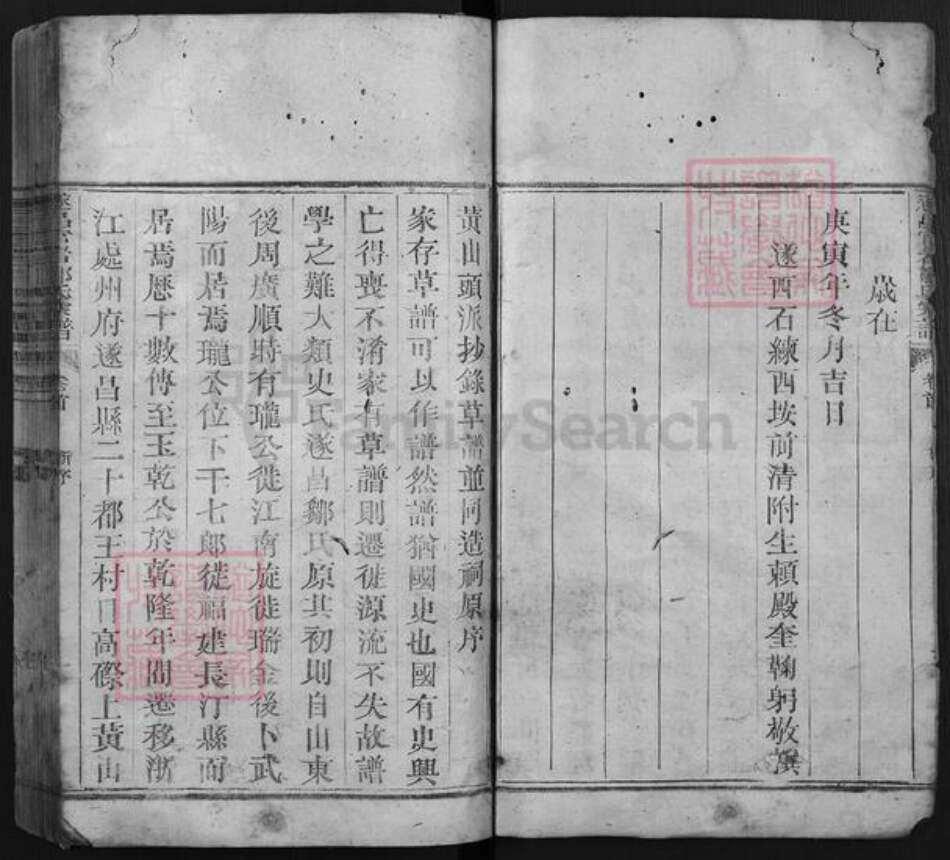 歲在
庚寅年冬月吉日
遂西石練西垵前清附生賴殿奎鞠躬敬譔
黃山頭派抄錄草譜並同造祠原序
家存草譜可以作譜然譜猶國史也國有史興
亡得喪不淆家有草譜則遷徙源流不失故譜
學之難大類史氏遂昌鄒氏原其初則自山東
後周廣順時有瓏公徙江南旋徙瑞金後卜武
陽而居焉瓏公位下千七郎徙福建長汀縣而
居焉歷十數傳至玉乾公於乾隆年間遷移浙
江處州府遂昌縣二十都王村口高際上黃山
新序
FamilySearch